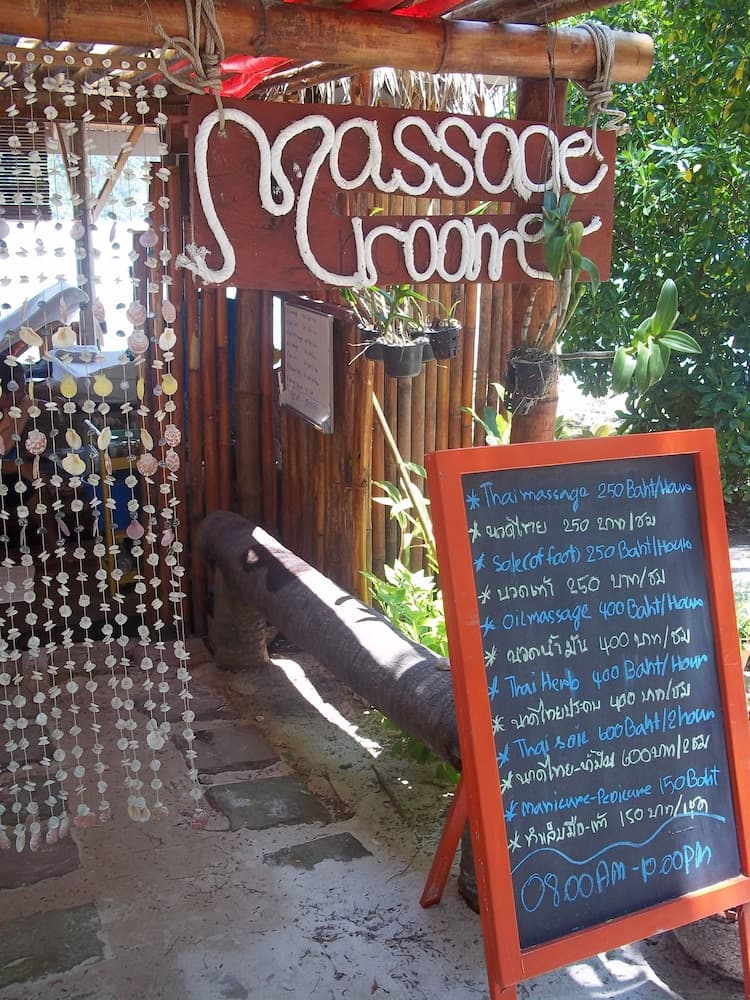 Massage
room
* Thai massage 250 Baht/Hour
* นวดไทย 250 บาท/ชม
* Sole(of foot) 250 Baht/Hour
* นวดเท้า 250 บาท/ชม
* Oil massage 400 Baht/Hour
* นวดน้ำมัน 400 บาท/ชม
* Thai Herb 400 Baht/Hour
* นวดไทยประคบ 400 บาท/ชม
* Thai soil 600 Baht/2 hour
* นวดไทย-น้ำมัน 600 บาท/2 ชม
* Manicure-Pedicure 150 Baht
* ทำเล็บมือ-เท้า 150 บาท/ชุด
08.00 AM - 10.00 PM